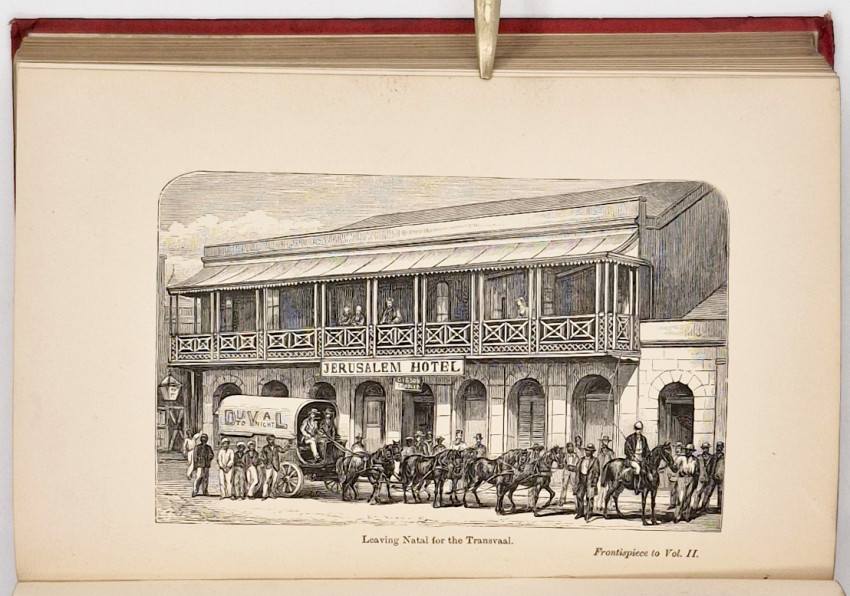 JERUSALEM HOTEL
GIBSON
DUVAL
TO NIGHT
Leaving Natal for the Transvaal.
Frontispiece to Vol. II.